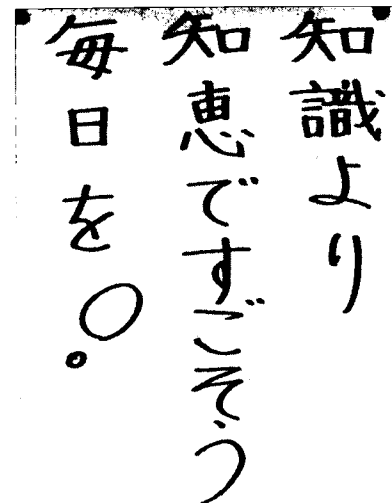 知識より
知恵ですごそう
毎日を〇。